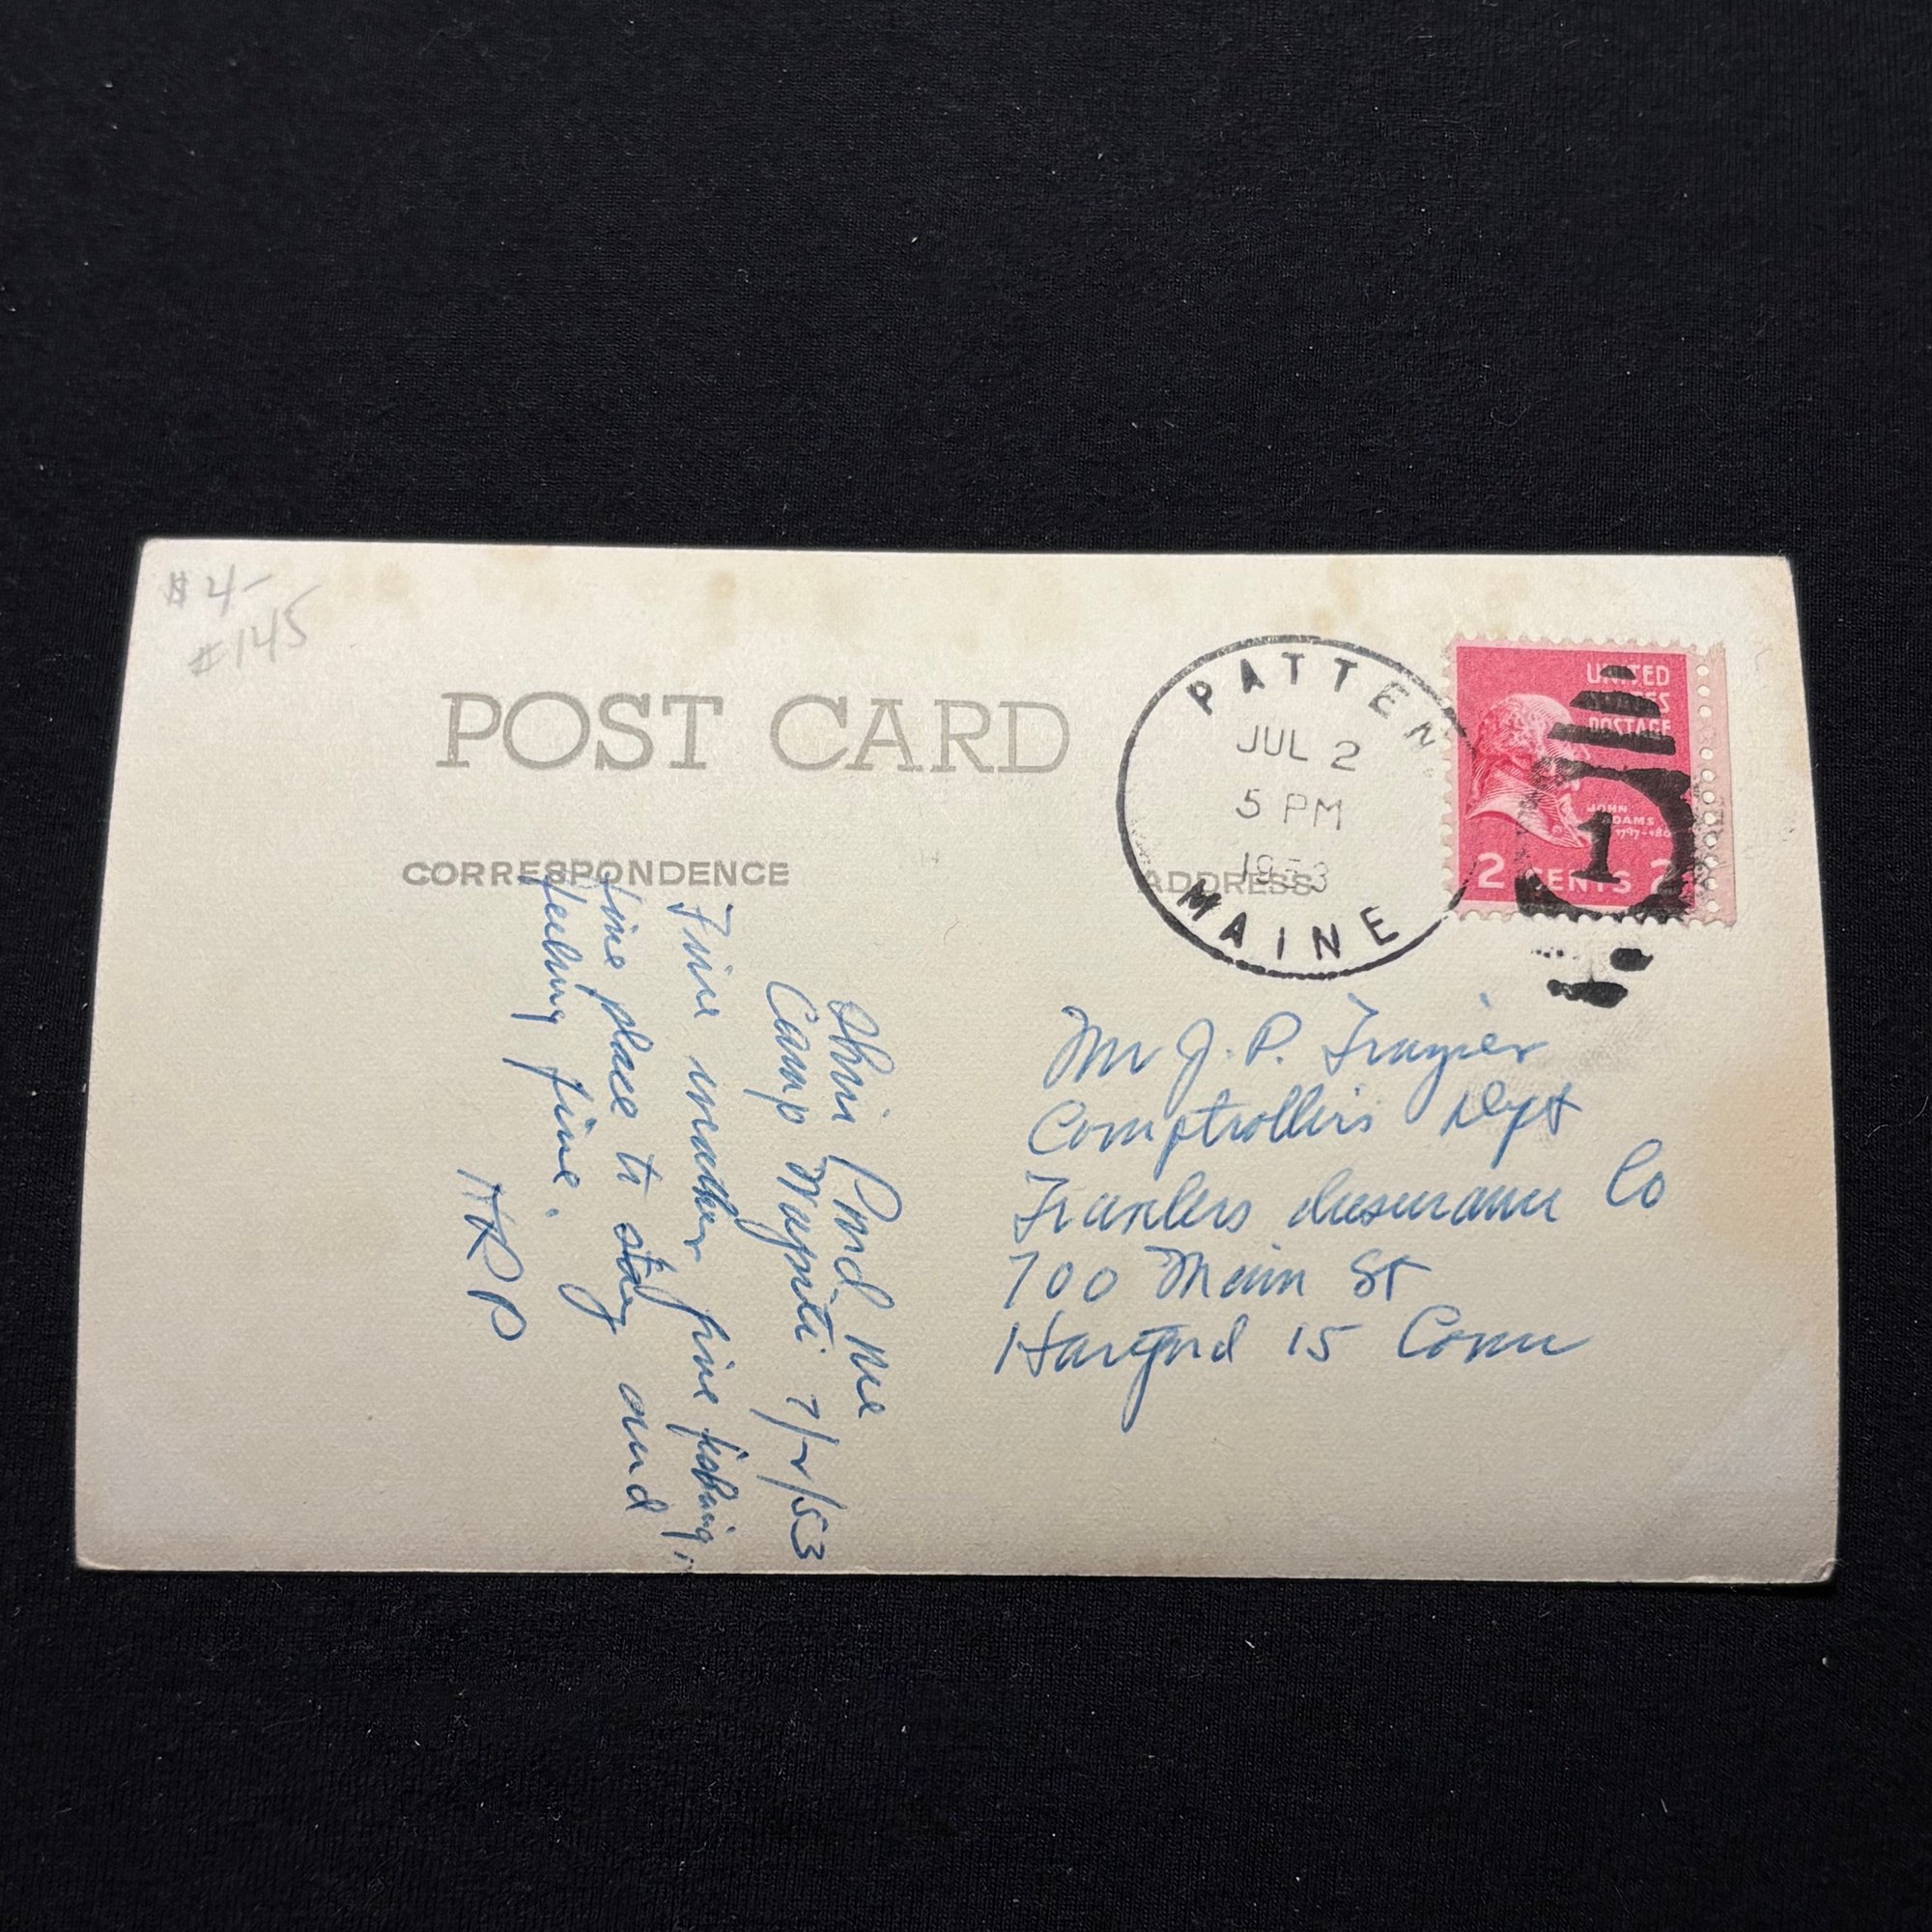 $4-
#145
POST CARD
CORRESPONDENCE
ADDRESS
PATTEN
JUL 2
5 PM
1953
MAINE
UNITED
STATES
POSTAGE
JOHN
ADAMS
1797-1801
2 CENTS 2
1
Shin Pond Me
Camp Wapiti 7/2/53
Fine weather fine fishing,
fine place to stay and
feeling fine.
HRP
Mr J. P. Frazier
Comptrollers Dept
Travelers Insurance Co
700 Main St
Hartford 15 Conn